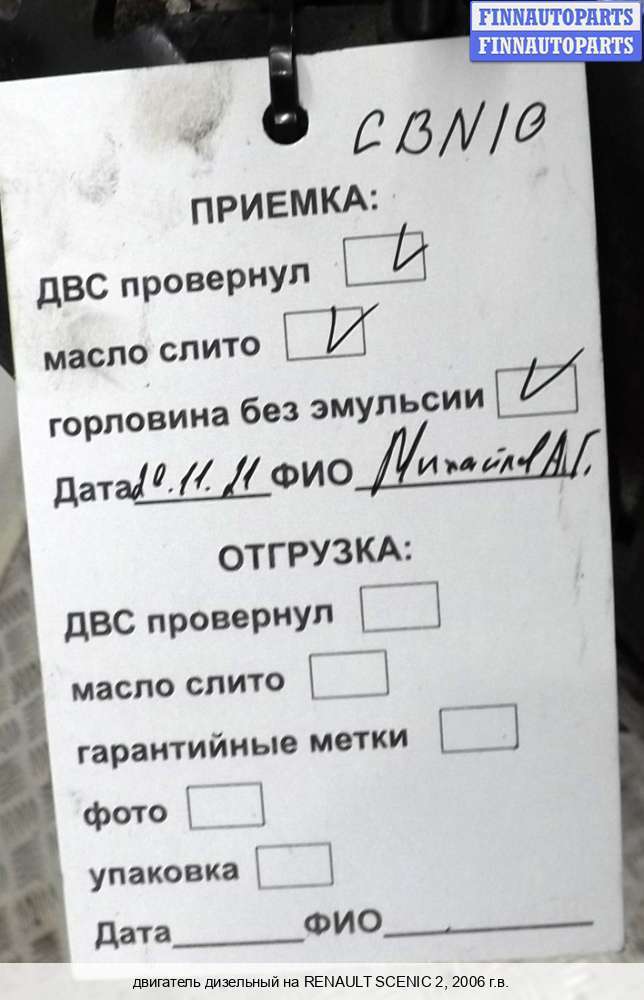 FINNAUTOPARTS
FINNAUTOPARTS
CBN10
ПРИЕМКА:
ДВС провернул
масло слито
горловина без эмульсии
Дата 20.11.21 ФИО Михайлов А.Г.
ОТГРУЗКА:
ДВС провернул
масло слито
гарантийные метки
фото
упаковка
Дата ФИО
двигатель дизельный на RENAULT SCENIC 2, 2006 г.в.